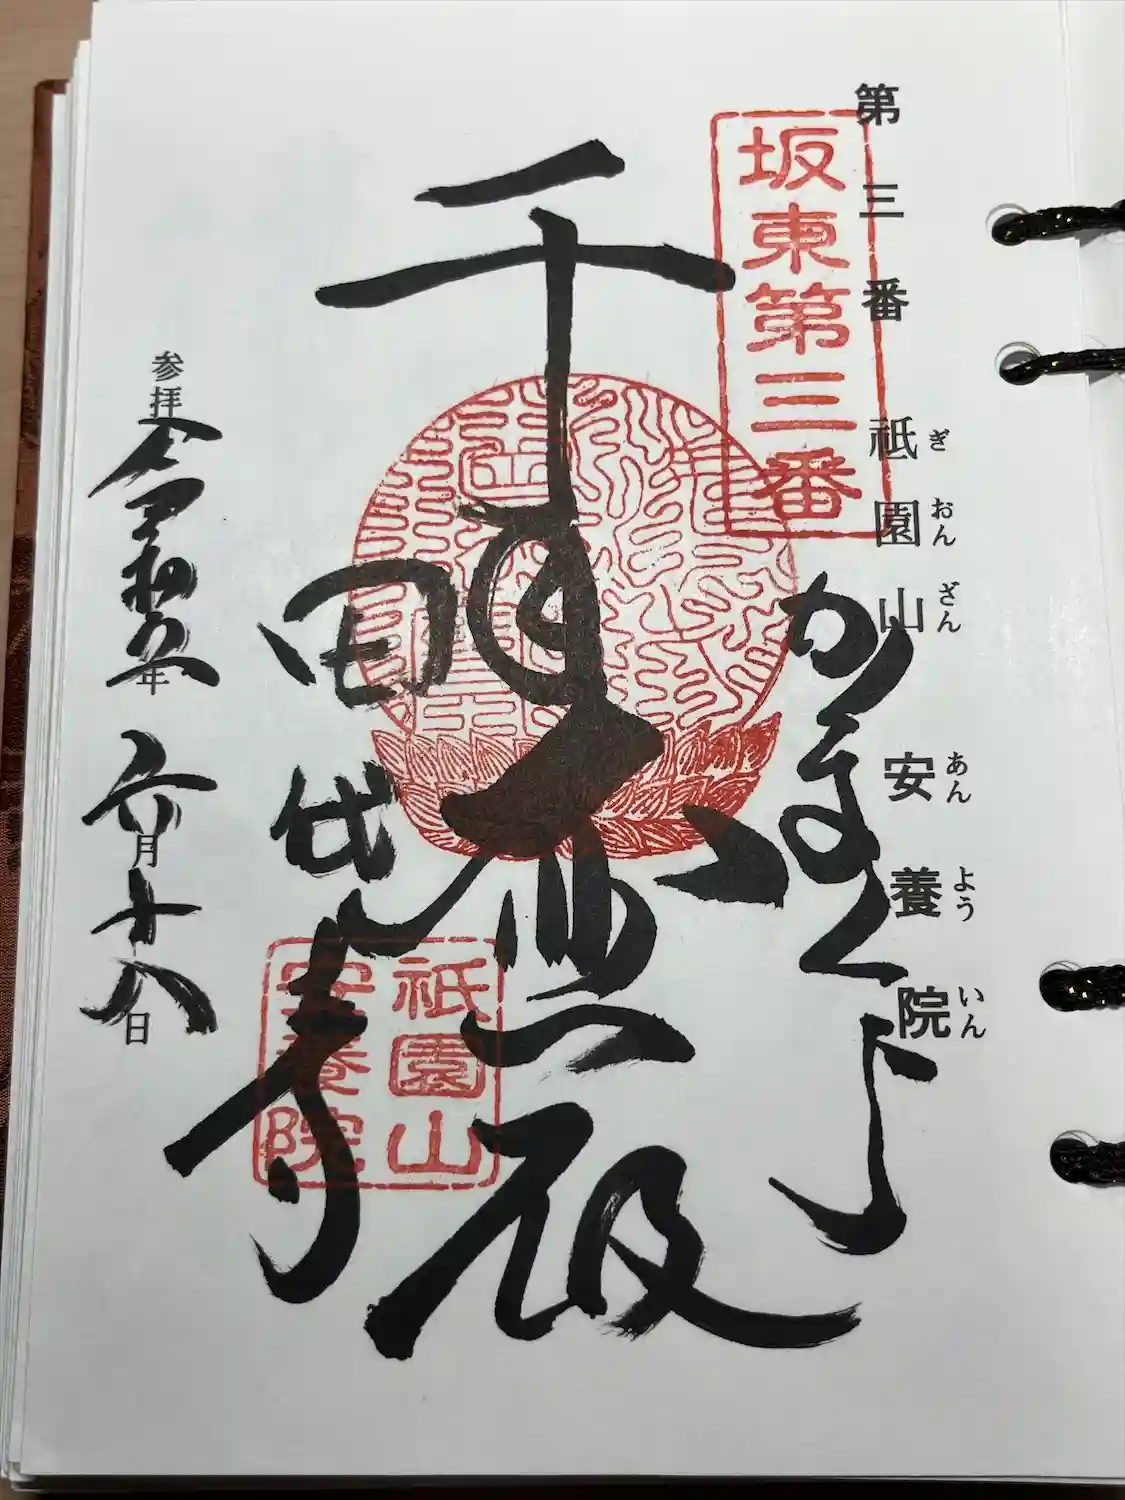 第三番 祇園山 安養院
ぎ おん ざん あん よう いん
坂東第三番
かまくら
千手大悲殿
田代寺
祇園山
安養院
参拝 令和五年六月十八日